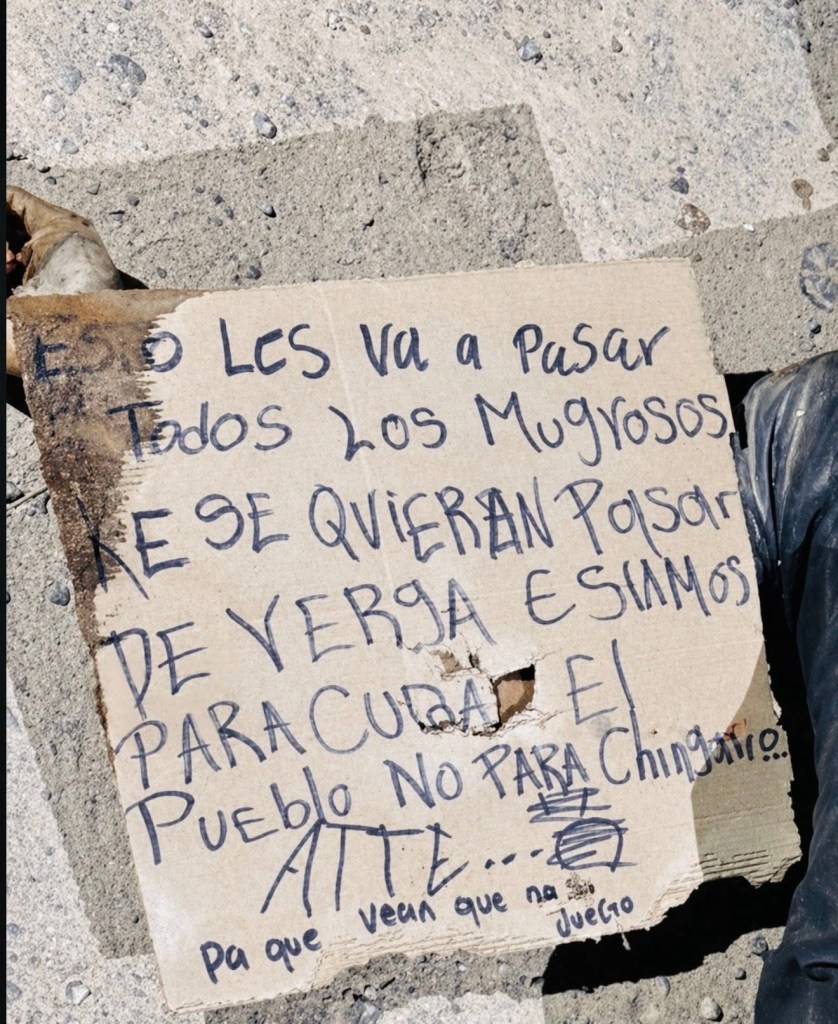 ESTO LES Va a Pasar
Todos Los Mugrosos
KE SE QUIERAN Pasar
DE VERGA ESTAMOS
PARA CUDA El
PUEblo NO PARA Chingarlo...
ATTE...
pa que vean que no
JUEGO